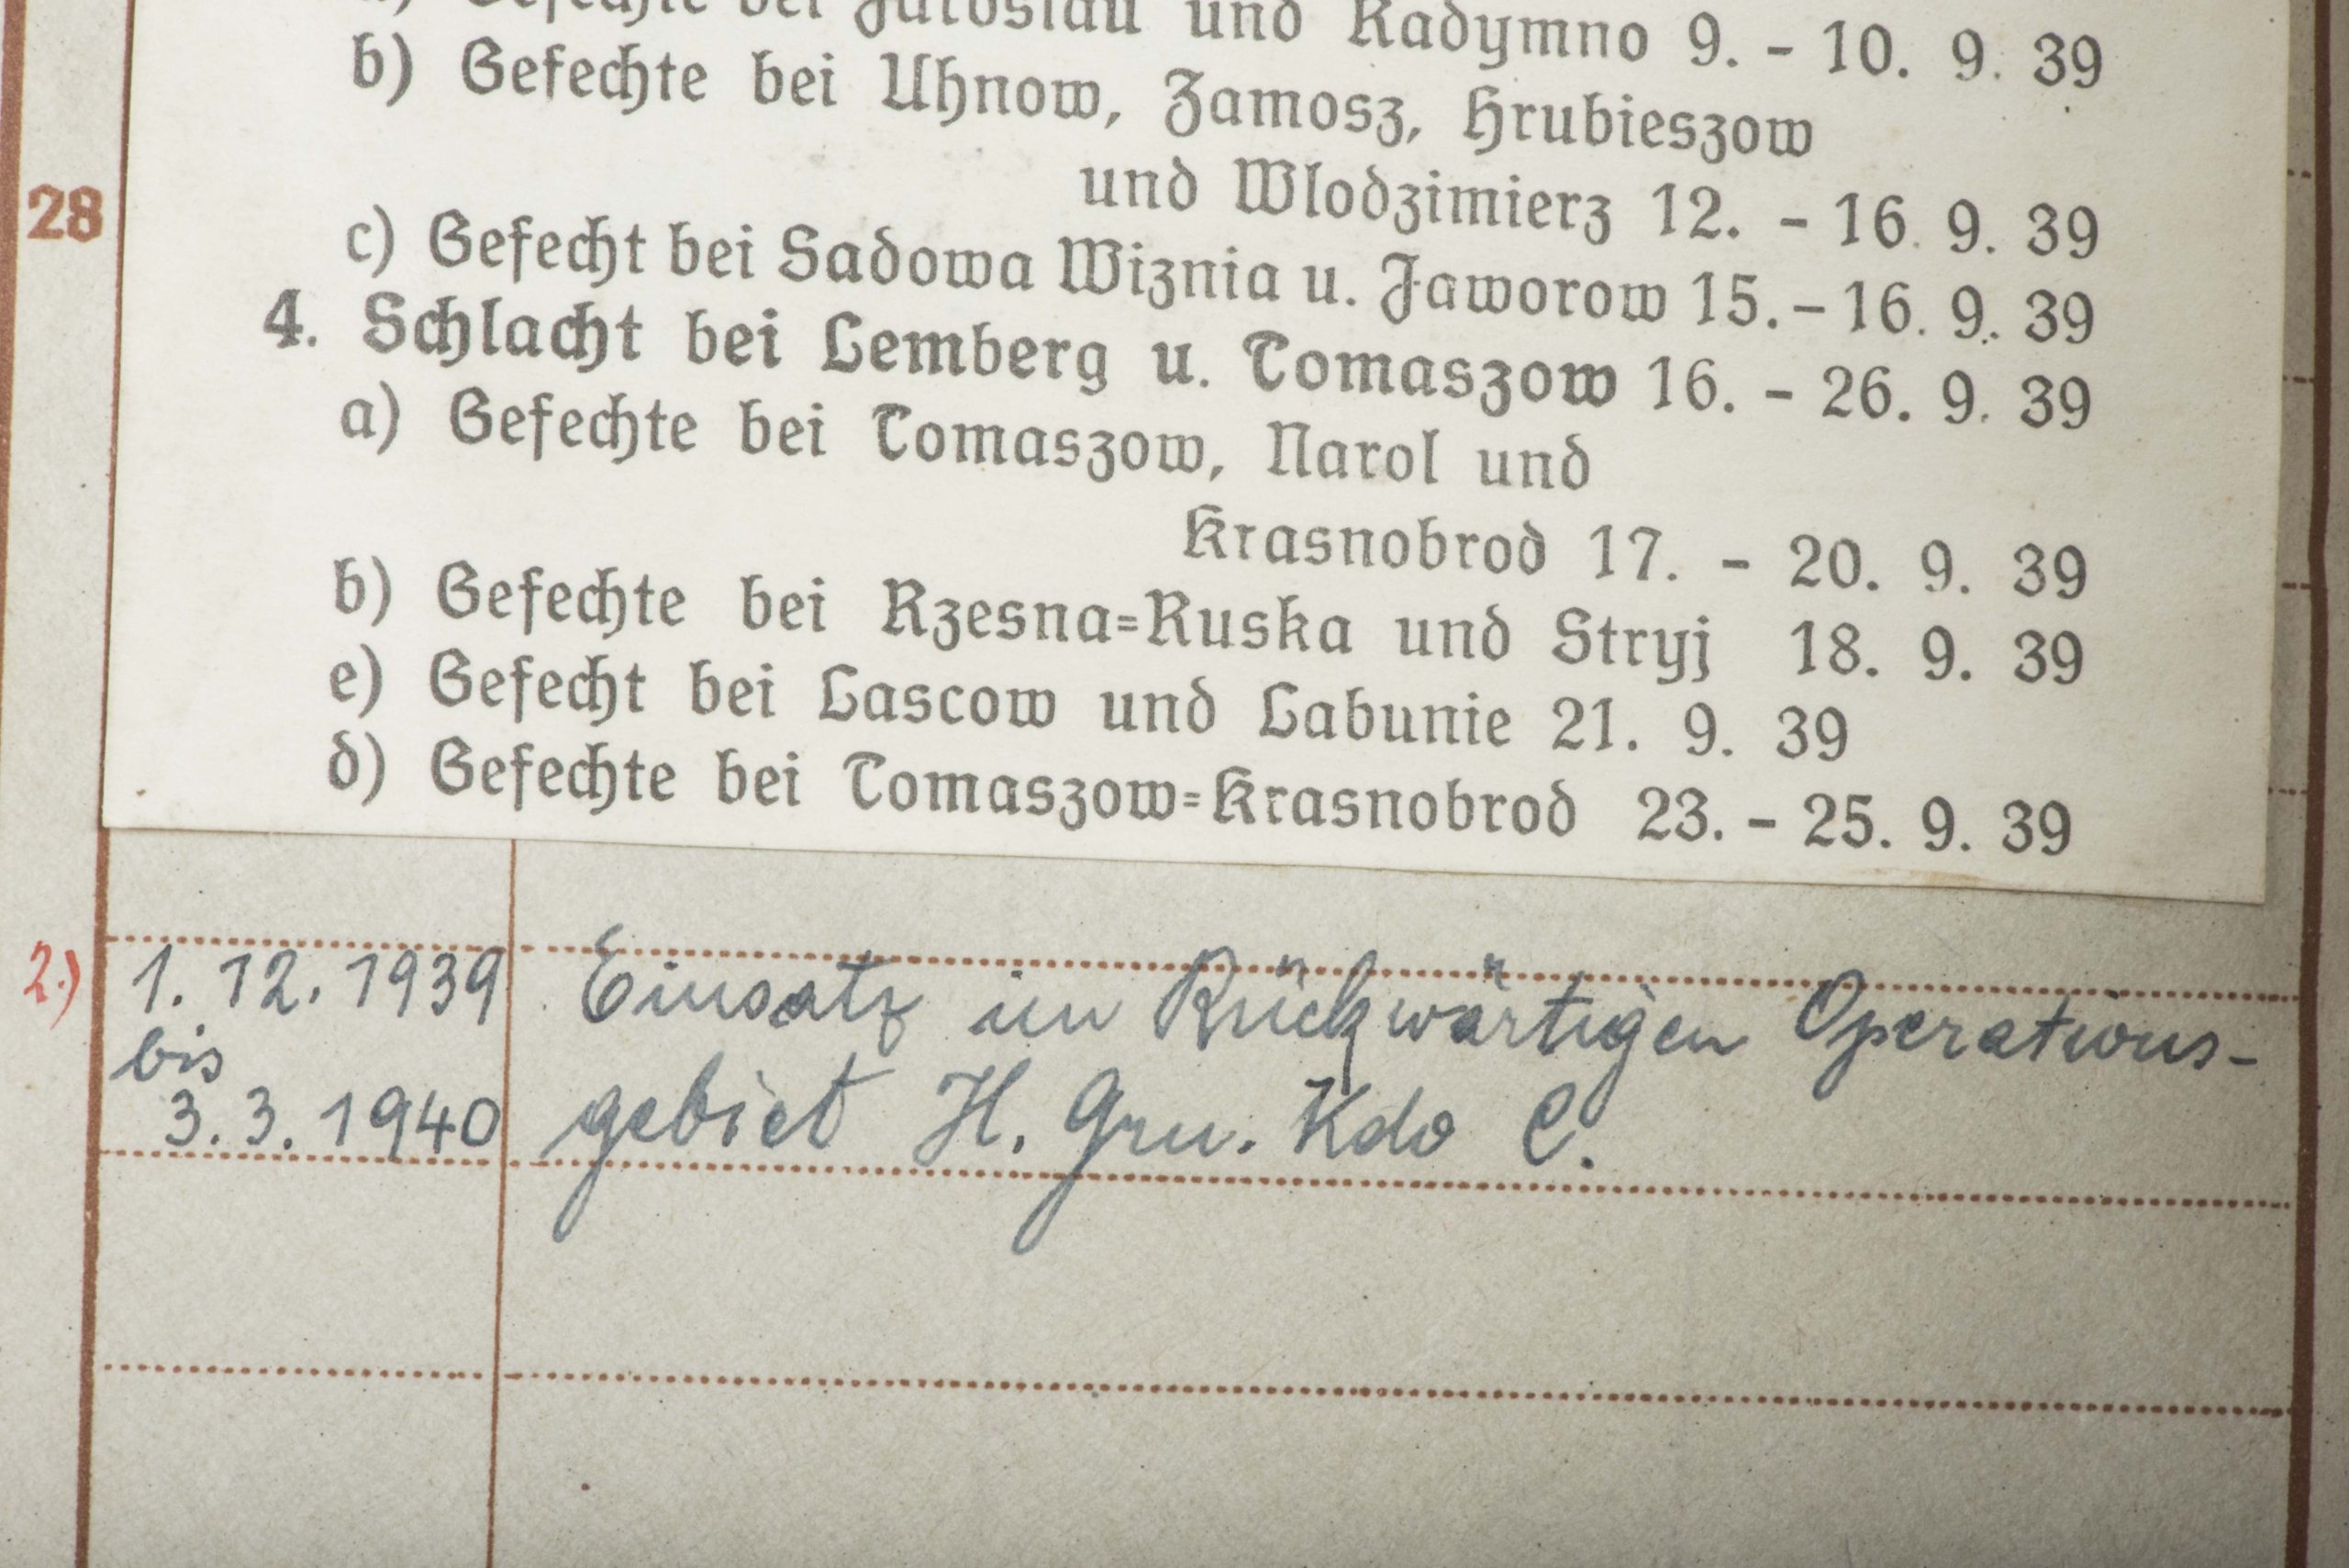 a) Gefechte bei Jaroslau und Radymno 9. - 10. 9. 39
b) Gefechte bei Uhnow, Zamosz, Hrubieszow
und Wlodzimierz 12. - 16. 9. 39
28
c) Gefecht bei Sadowa Wiznia u. Jaworow 15. - 16. 9. 39
4. Schlacht bei Lemberg u. Tomaszow 16. - 26. 9. 39
a) Gefechte bei Tomaszow, Narol und
Krasnobrod 17. - 20. 9. 39
b) Gefechte bei Rzesna=Ruska und Stryj 18. 9. 39
e) Gefecht bei Lascow und Labunie 21. 9. 39
d) Gefechte bei Tomaszow=Krasnobrod 23. - 25. 9. 39
2.) 1. 12. 1939 Einsatz im Rückwärtigen Operations-
bis
3. 3. 1940 gebiet H. Gru. Kdo C.